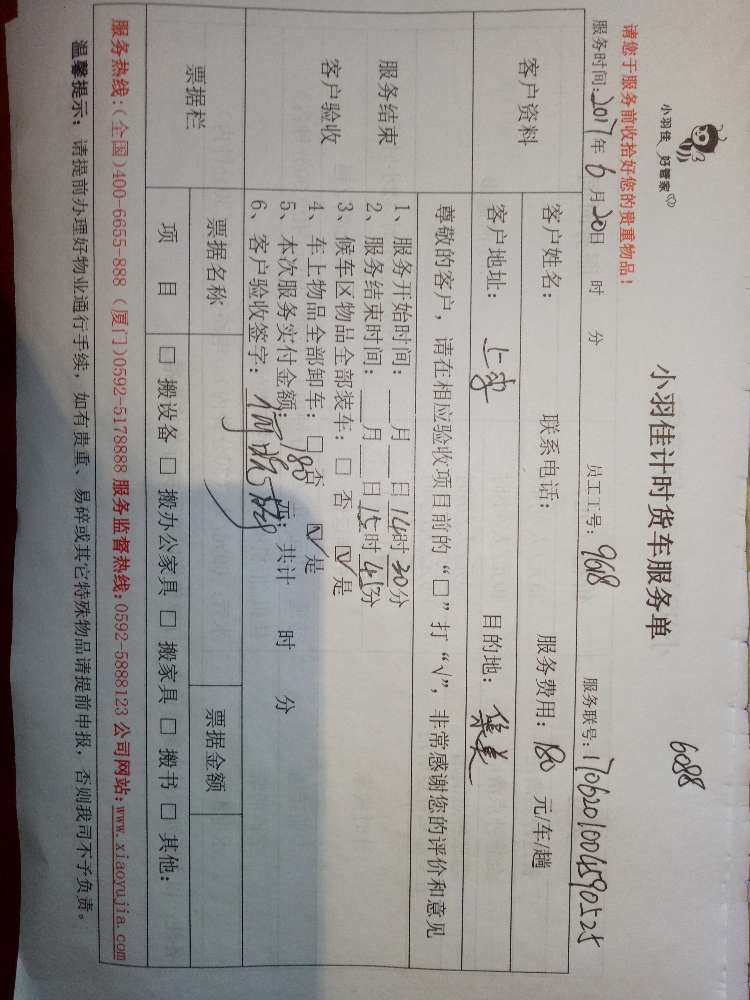 小羽佳 好管家
小羽佳计时货车服务单
6088
请您于服务前收拾好您的贵重物品！
服务时间：2017年 6 月20日 时 分 员工工号：968 服务联号：1706201004590525
客户资料
客户姓名： 联系电话： 服务费用：180 元/车/趟
客户地址： 目的地：集美
服务结束
客户验收
尊敬的客户，请在相应验收项目前的“□”打“√”，非常感谢您的评价和意见
1、服务开始时间：___月___日14时20分
2、服务结束时间：___月___日15时45分
3、候车区物品全部装车：□ 否 ☑ 是
4、车上物品全部卸车：□ 否 ☑ 是
5、本次服务实付金额：180元；共计 时 分
6、客户验收签字：
票据栏
票据名称 票据金额
项 目 □ 搬设备 □ 搬办公家具 □ 搬家具 □ 搬书 □ 其他：
服务热线：(全国)400-6655-888 (厦门)0592-5178888 服务监督热线：0592-5888123 公司网站：www.xiaoyujia.com
温馨提示：请提前办理好物业通行手续，如有贵重、易碎或其它特殊物品请提前申报，否则我司不予负责。